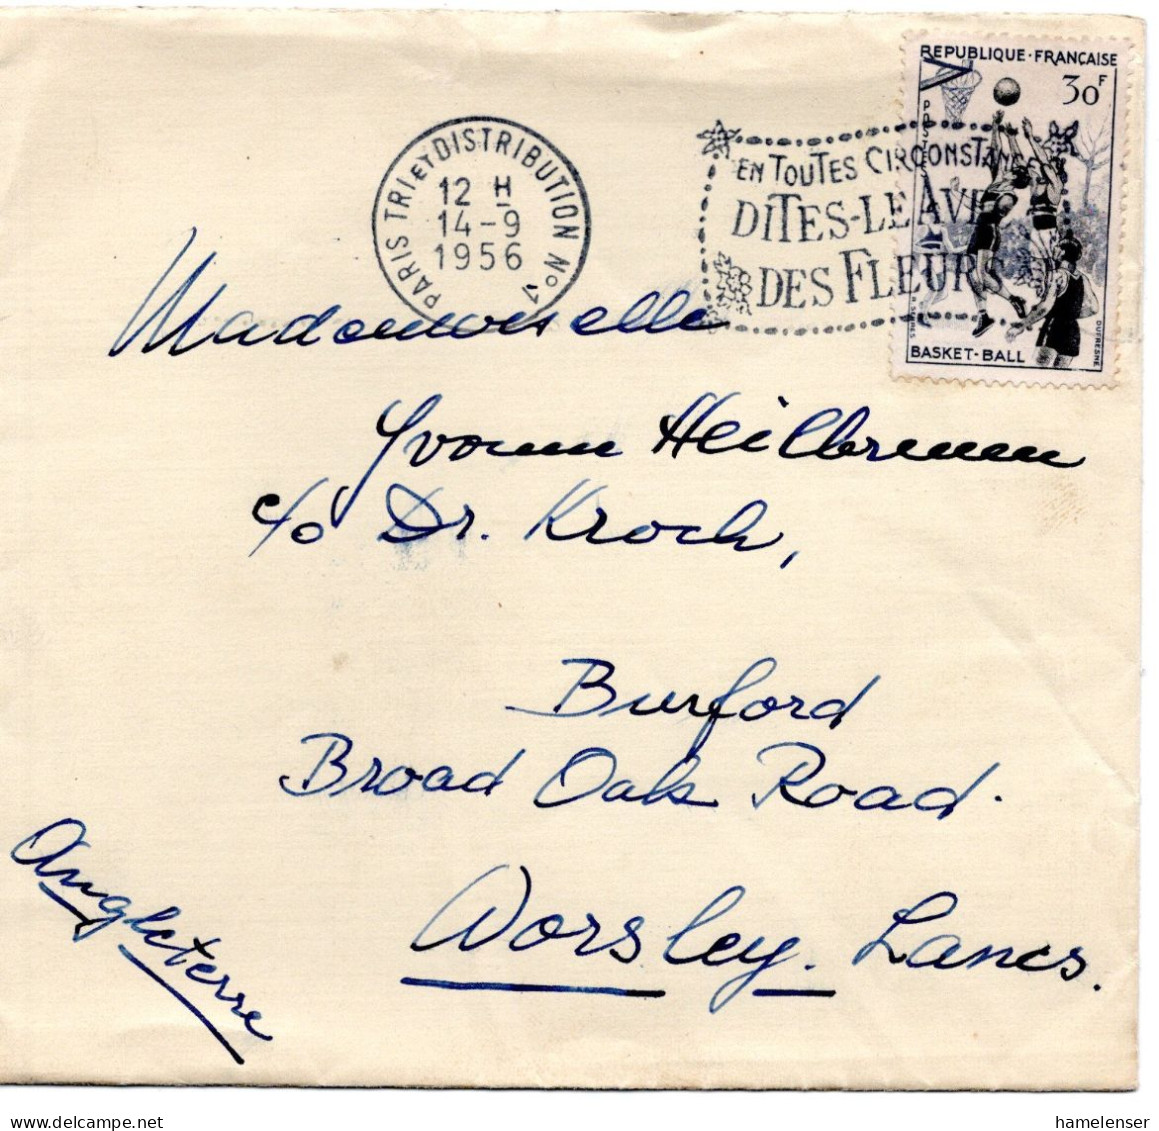 REPUBLIQUE·FRANÇAISE
30F
PARIS TRI ET DISTRIBUTION No 1
12 H
14-9
1956
EN TOUTES CIRCONSTANCES
DITES-LE AVEC
DES FLEURS
BASKET-BALL
DUFRESNE
Mademoiselle
Yvonne Heilbrunn
c/o Dr. Kroch,
Burford
Broad Oak Road.
Worsley. Lancs.
Angleterre
hamelenser